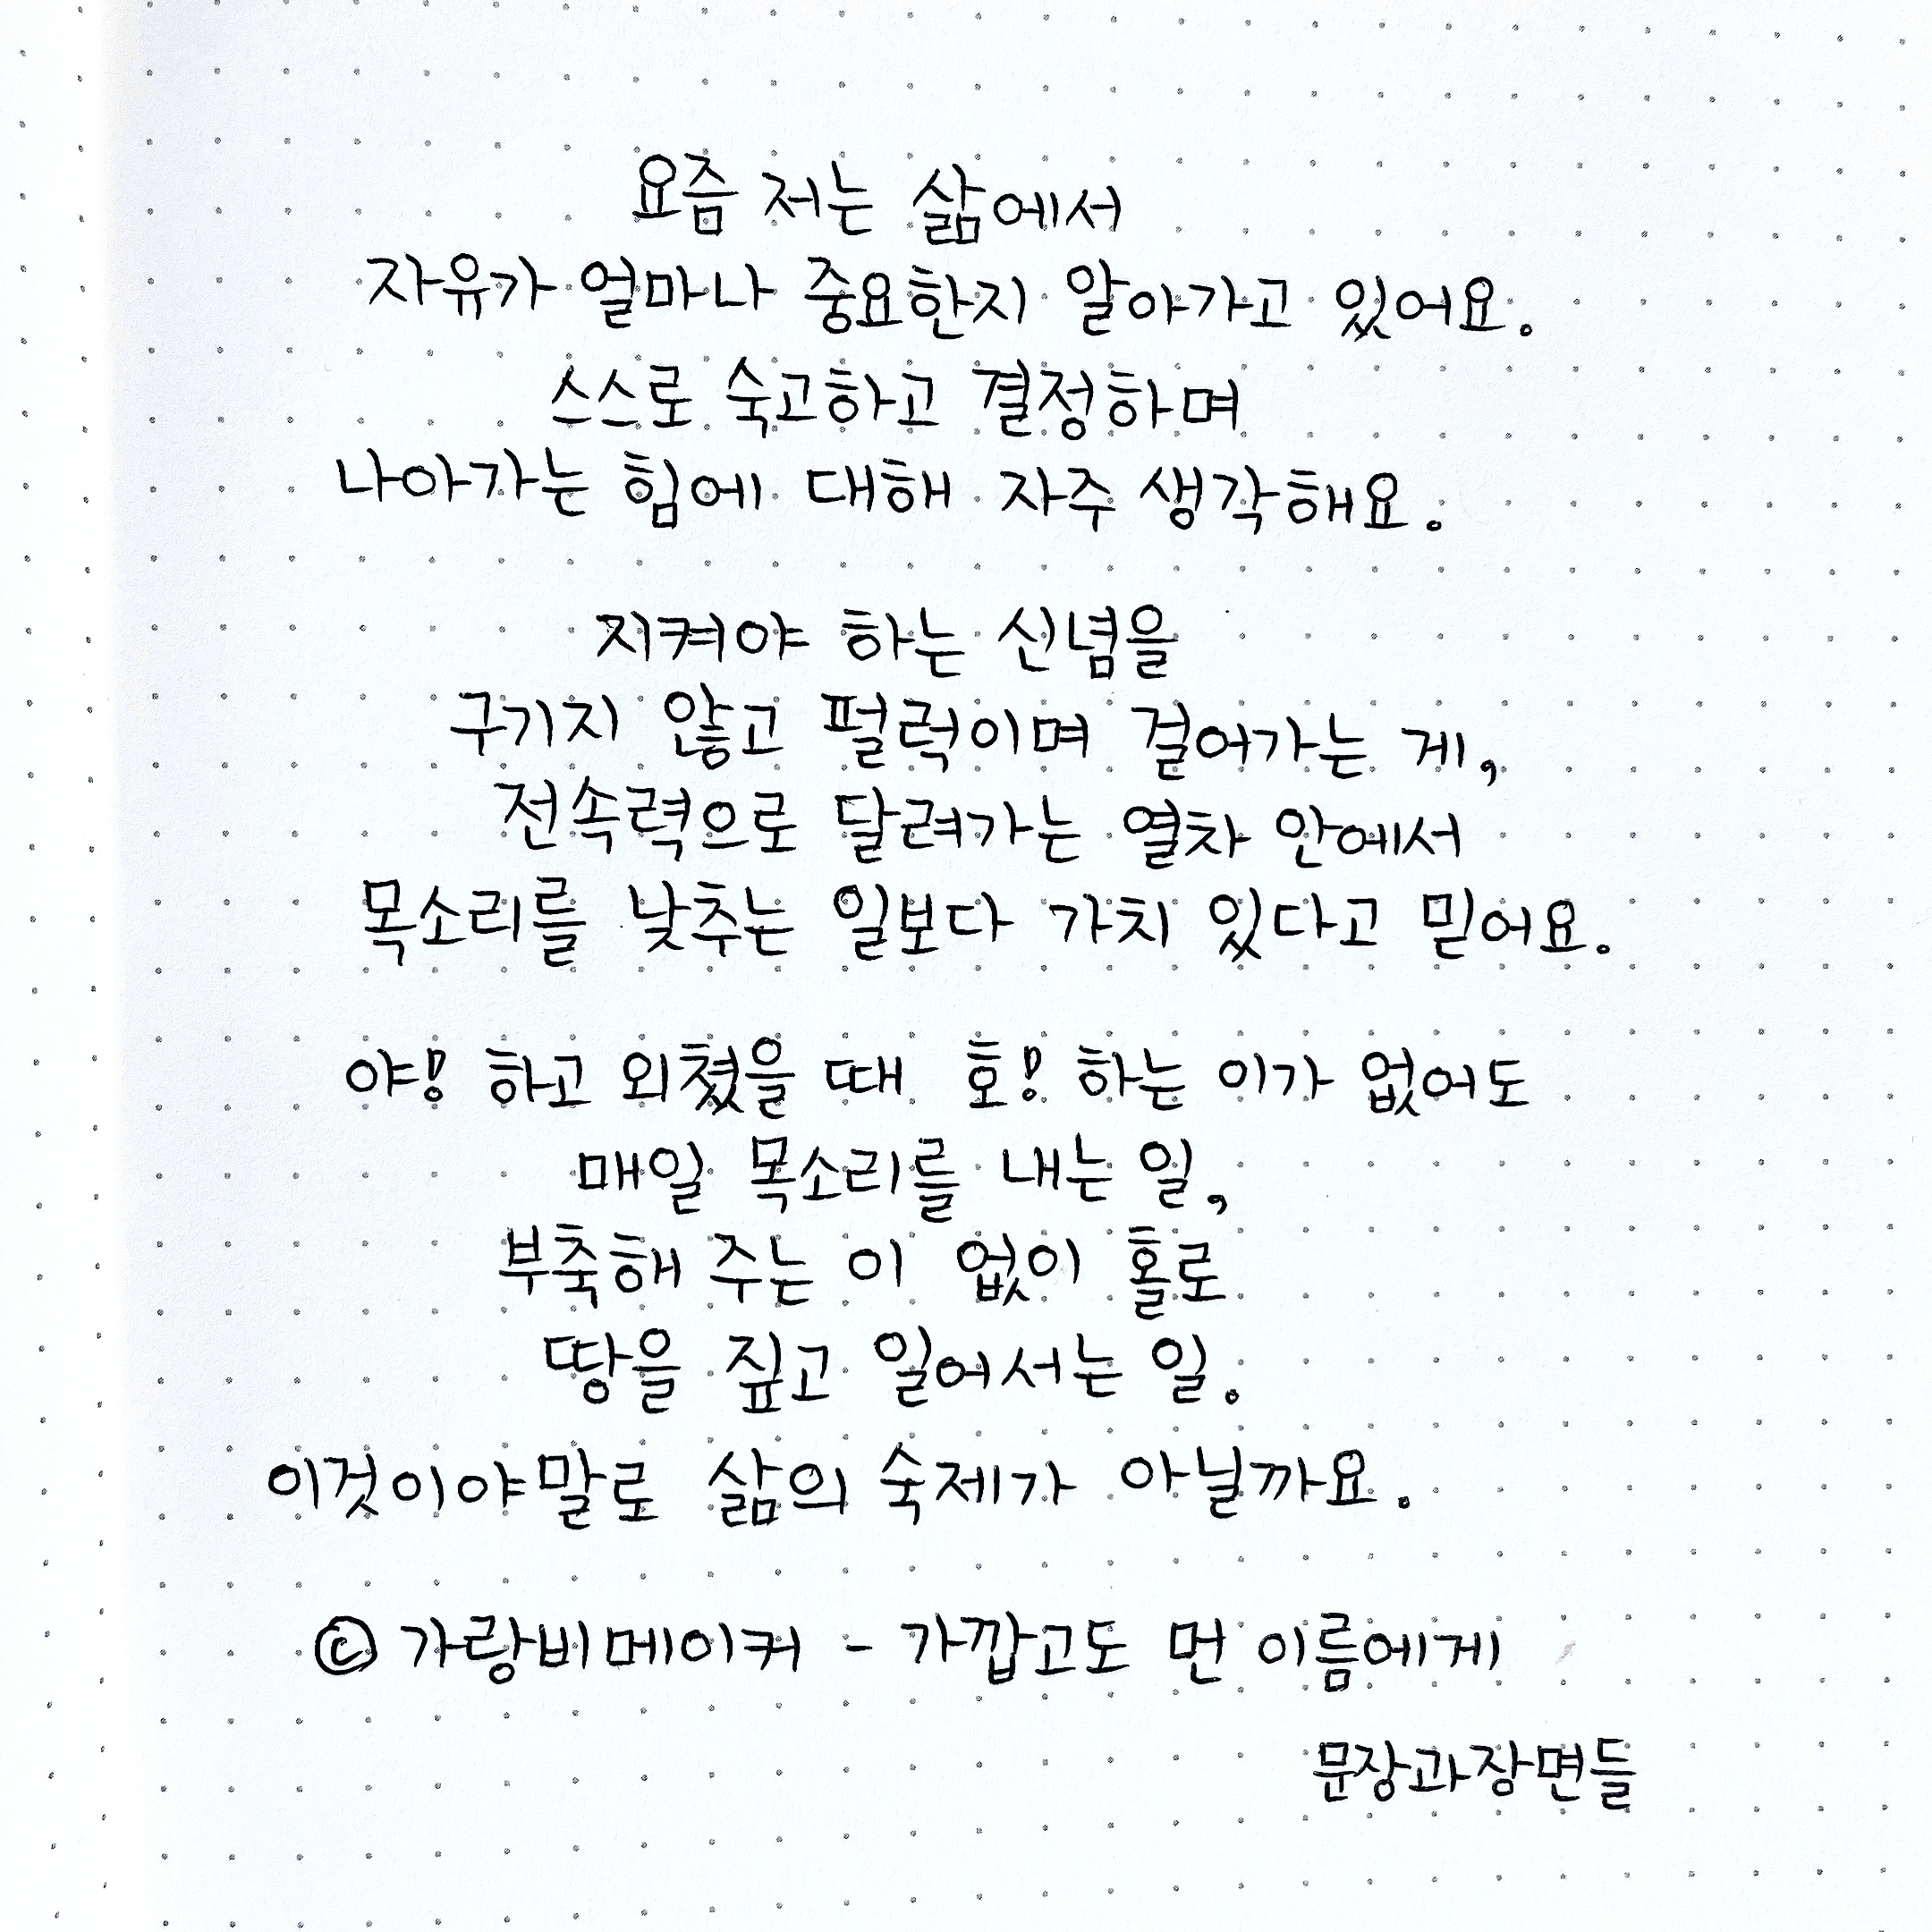 요즘 저는 삶에서
자유가 얼마나 중요한지 알아가고 있어요.
스스로 숙고하고 결정하며
나아가는 힘에 대해 자주 생각해요.
지켜야 하는 신념을
구기지 않고 펄럭이며 걸어가는 게,
전속력으로 달려가는 열차 안에서
목소리를 낮추는 일보다 가치 있다고 믿어요.
야! 하고 외쳤을 때 호! 하는 이가 없어도
매일 목소리를 내는 일,
부축해 주는 이 없이 홀로
땅을 짚고 일어서는 일.
이것이야말로 삶의 숙제가 아닐까요.
© 가랑비메이커 - 가깝고도 먼 이름에게
문장과장면들